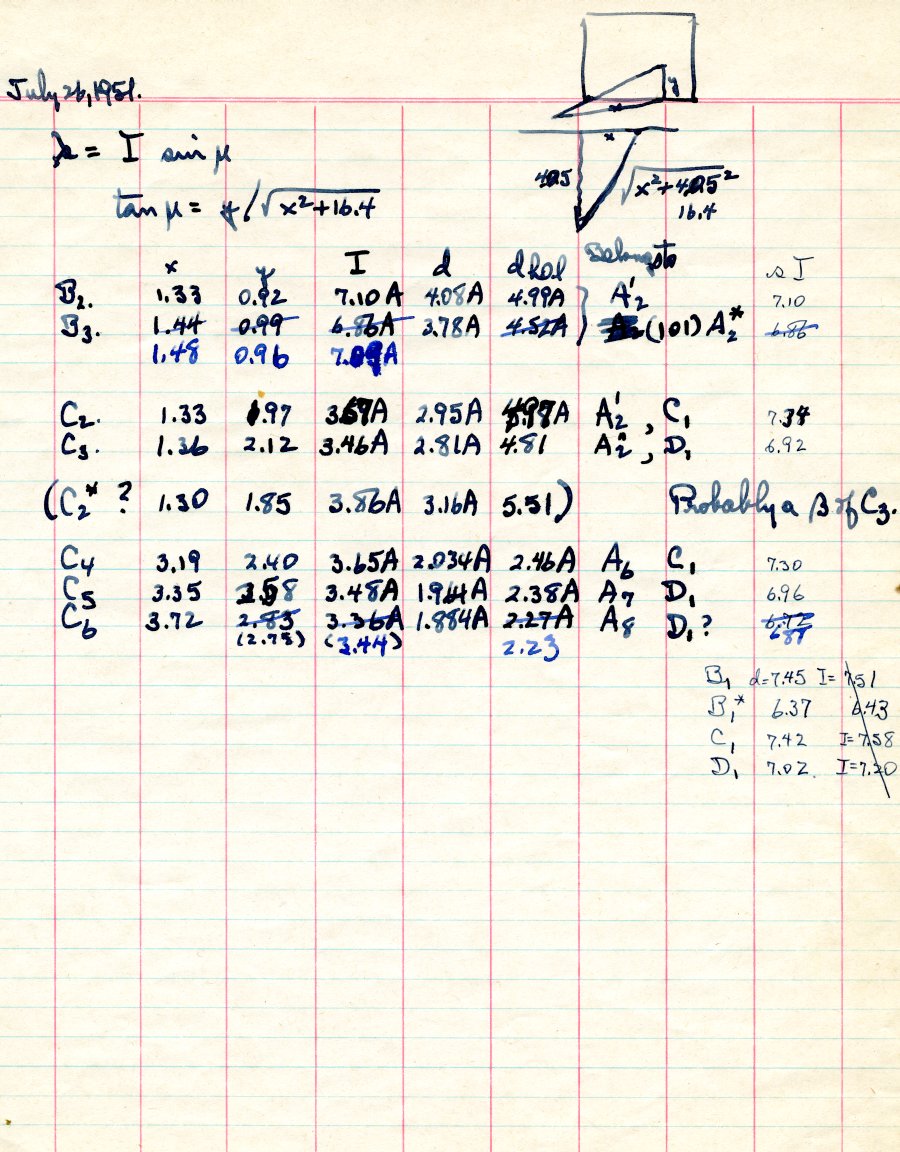 July 26, 1951.
y
x
x
4.05
√x²+4.05²
16.4
λ = I sin μ
tan μ = y/√x²+16.4
x y I d dh0l Belongs to s I
B2. 1.33 0.92 7.10A 4.08A 4.99A A2' 7.10
B3. 1.44 0.99 6.86A 3.78A 4.52A (101) A2* 6.86
1.48 0.96
C2. 1.33 1.97 2.95A A2', C1 7.34
C3. 1.36 2.12 3.46A 2.81A 4.81 A2", D1 6.92
(C2* ? 1.30 1.85 3.86A 3.16A 5.51) Probably a β of C3.
C4 3.19 2.40 3.65A 2.034A 2.46A A6 C1 7.30
C5 3.35 2.58 3.48A 1.964A 2.38A A7 D1 6.96
C6 3.72 2.83 3.36A 1.884A 2.27A A8 D1? 6.72
(2.75) (3.44) 2.23 6.87
B1 d=7.45 I=7.51
B1* 6.37 6.43
C1 7.42 I=7.58
D1 7.02. I=7.20